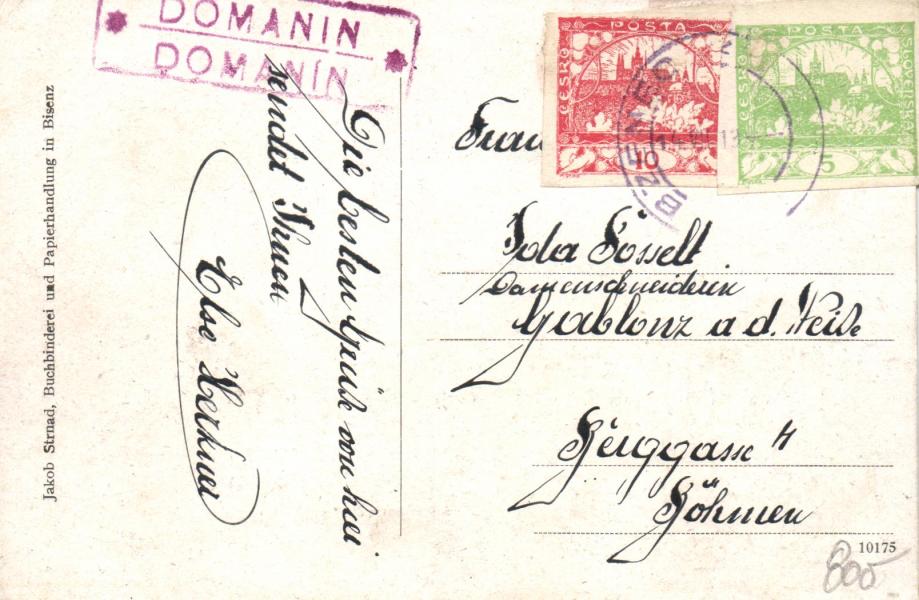 DOMANIN
DOMANÍN
Jakob Strnad, Buchbinderei und Papierhandlung in Bisenz
Die besten Grüße von hier
sendet Ihnen
Else
POŠTA
ČESKO
SLOVENSKÁ
10
POŠTA
ČESKO
SLOVENSKÁ
5
BZENEC
Frau
Ida Posselt
Damenschneiderin
Gablonz a. d. Neiße
Berggasse 4
Böhmen
10175
800